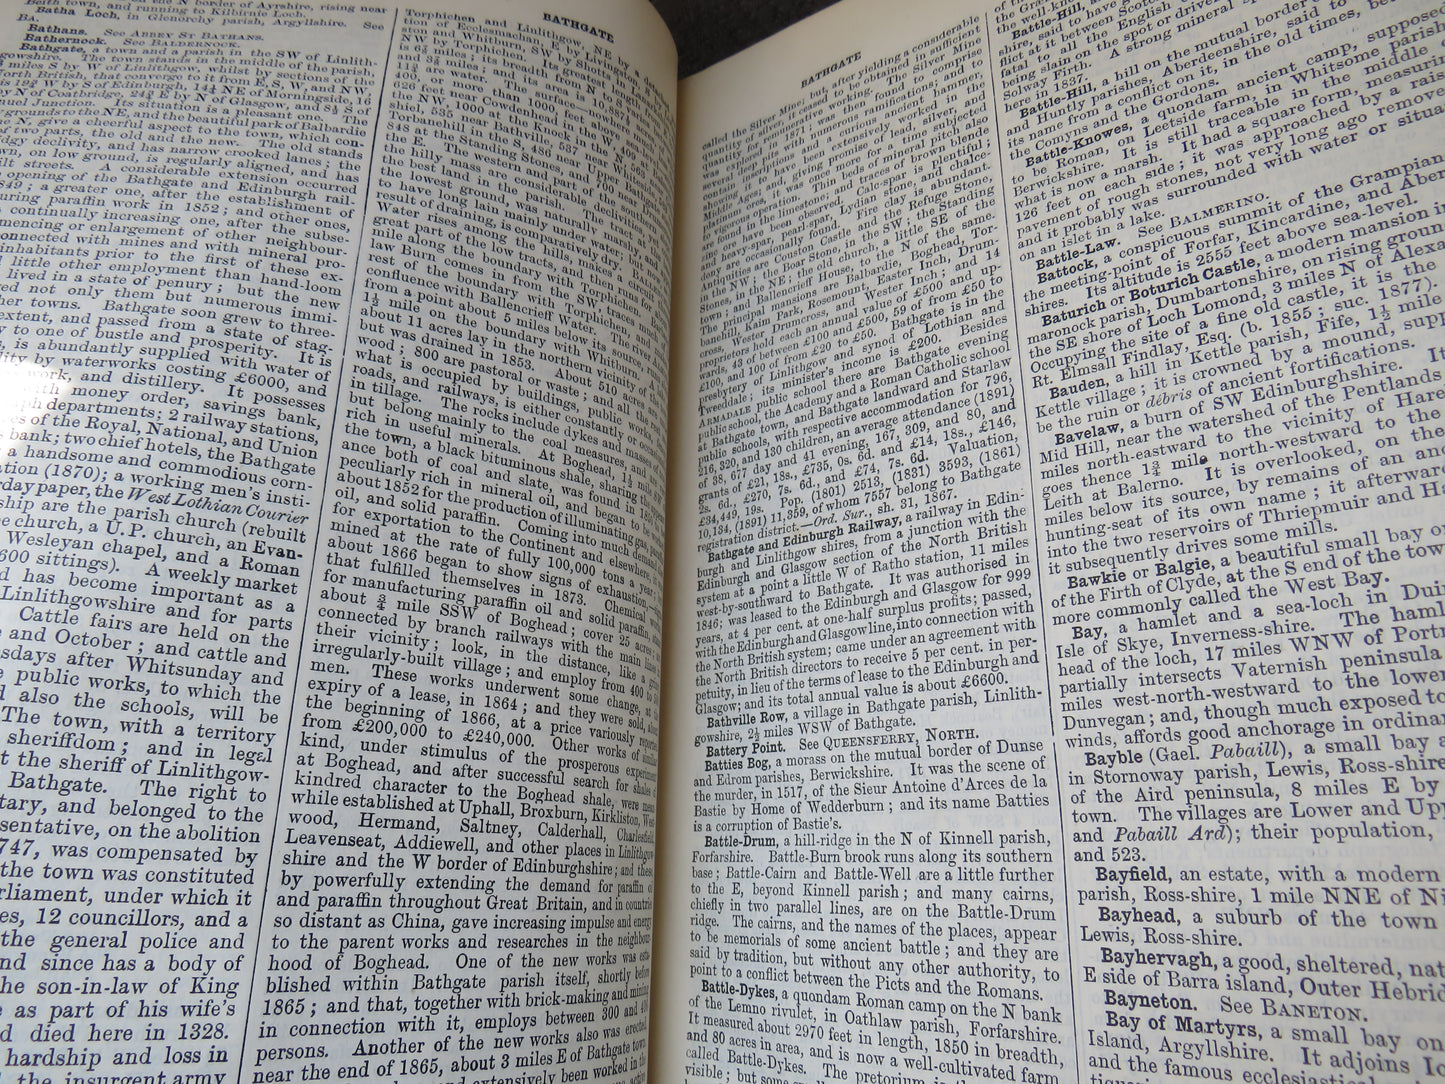 BATHGATE
Beith town, and on the N border of Ayrshire, rising near
and running to Kilbirnie Loch.
Batha Loch, in Glenorchy parish, Argyllshire. See
BA.
Bathans. See ABBEY ST BATHANS.
Bathernock. See BALDERNOCK.
Bathgate, a town and a parish in the SW of Linlith-
gowshire. The town stands in the middle of the parish,
miles S by W of Linlithgow, whilst by sections of the
North British, that converge to it from E, S, W, and NW,
is 19½ W by S of Edinburgh, 14¼ NE of Morningside, 16
by N of Coatbridge, 24¾ E by N of Glasgow, and 8¾ S of
nuel Junction. Its situation is a pleasant one. The
grounds to the NE, and the beautiful park of Balbardie
N, give a cheerful aspect to the town, which con-
of two parts, the old and the new. The old stands
dgy declivity, and has narrow crooked lanes; the
n, on low ground, is regularly aligned, and has
ilt streets. A considerable extension occurred
opening of the Bathgate and Edinburgh rail-
849; a greater one, after the establishment of
uring paraffin work in 1852; and other ones,
continually increasing one, after the subse-
mencing or enlargement of other neighbour-
connected with mines and with mineral pro-
inhabitants prior to the first of these ex-
little other employment than hand-loom
lived in a state of penury; but the new
ed not only them but numerous immi-
her towns. Bathgate soon grew to three-
extent, and passed from a state of stag-
y to one of bustle and prosperity. It is
h, is abundantly supplied with water of
lity by waterworks costing £6000, and
work, and distillery. It possesses
with money order, savings bank,
ph departments; 2 railway stations,
es of the Royal, National, and Union
bank; two chief hotels, the Bathgate
a handsome and commodious corn-
ation (1870); a working men's insti-
rday paper, the West Lothian Courier
ship are the parish church (rebuilt
e church, a U.P. church, an Evan-
Wesleyan chapel, and a Roman
600 sittings). A weekly market
d has become important as a
Linlithgowshire and for parts
Cattle fairs are held on the
e and October; and cattle and
esdays after Whitsunday and
e public works, to which the
d also the schools, will be
The town, with a territory
sheriffdom; and in legal
t the sheriff of Linlithgow-
Bathgate. The right to
itary, and belonged to the
esentative, on the abolition
747, was compensated by
the town was constituted
rliament, under which it
es, 12 councillors, and a
the general police and
nd since has a body of
he son-in-law of King
e as part of his wife's
d died here in 1328.
hardship and loss in
the insurgent army
Torphichen and Linlithgow, NE by a detached
tion of Ecclesmachan, E by Livingston,
ston and Whitburn, SW by Shotts in Lanarkshire,
W by Torphichen. Its greatest length,
is 6⅞ miles; its breadth from N to S
and 3⅜ miles; and its area is 10,887½ acres,
11¼ are water. The surface—nowhere
400, or more than 1000 feet above
626 feet near Cowdenhead in the
the NW, 1000 at the Knock in the
shiel, 535 near Bathville, 663
Torbanehill in the S, 486 near
848 at the Standing Stones, and 700
the E. The western and part of the
the hilly many are considerable
the lowest ground, was naturally
to have long lain mainly under water,
result of draining, is comparatively dry.
Water rises among the hills, makes a
great part of the low tracts, and then
mile along the boundary with Torphichen
law Burn comes in from the SW, traces
rest of the boundary with Torphichen,
confluence with Ballencrieff Water.
from a point about 5 miles below its source,
1½ mile on the boundary with Whitburn. A
about 11 acres lay in the northern vicinity of
but was drained in 1853. About 510 acres
wood; 800 are pastoral or waste; and all the
what is occupied by buildings, public works,
roads, and railways, is either constantly or
in tillage. The rocks include dykes and masses of
but belong mainly to the coal measures, and
rich in useful minerals. At Boghead, 1¼ mile SW
the town, a black bituminous shale, sharing the
ance both of coal and slate, was found in 1850
peculiarly rich in mineral oil, and began to be
about 1852 for the production of illuminating gas,
oil, and solid paraffin. Coming into much demand
for exportation to the Continent and elsewhere,
mined at the rate of fully 100,000 tons a year;
about 1866 began to show signs of exhaustion,—
that fulfilled themselves in 1873. Chemical works
for manufacturing paraffin oil and solid paraffin,
about ¾ mile SSW of Boghead; cover 25 acres;
connected by branch railways with the main lines
their vicinity; look, in the distance, like a
irregularly-built village; and employ from 400
men. These works underwent some change, at the
expiry of a lease, in 1864; and they were sold, about
the beginning of 1866, at a price variously reported
from £200,000 to £240,000. Other works of similar
kind, under stimulus of the prosperous experiment
at Boghead, and after successful search for shales of
kindred character to the Boghead shale, were mean-
while established at Uphall, Broxburn, Kirkliston, West-
wood, Hermand, Saltney, Calderhall, Charlesfield,
Leavenseat, Addiewell, and other places in Linlithgow-
shire and the W border of Edinburghshire; and these,
by powerfully extending the demand for paraffin oil
and paraffin throughout Great Britain, and in countries
so distant as China, gave increasing impulse and energy
to the parent works and researches in the neighbour-
hood of Boghead. One of the new works was esta-
blished within Bathgate parish itself, shortly before
1865; and that, together with brick-making and mining
in connection with it, employs between 300 and 400
persons. Another of the new works also was erected,
near the end of 1865, about 3 miles E of Bathgate town
and extensively been worked in the
BATHGATE
called the Silver Mine; but, after yielding a considerable
quantity of silver, it ceased to be obtained in sufficient
for the profitable working. The Silver Mine
has numerous and curious ramifications; and comprises
several
Middle Ages; and, giving promise of lead, silver, and
vigorous operation. Thin beds of brown blende
are found in the limestone, and traces of pitch and
ore have been observed. Calc-spar is plentiful;
ine heavy-spar, pearl-spar, Lydian stone, and chalce-
dony are occasionally found. Fire clay is abundant.
Antiquities are Couston Castle and the Refuge Stone,
in the NW; the Boar Stone, in the SW; the Standing
Stones, in the NE; the old church, a little SE of the
town; and Ballencrieff House, to the N of the same.
The principal mansions are Balbardie, Boghead, Tor-
banehill, Kaim Park, Rosemount, Wester Inch, Drum-
cross, Wester Drumcross, and Easter Inch; and 14
proprietors hold each an annual value of £500 and up-
wards, 43 of between £100 and £500, 59 of from £50 to
£100, and 100 of from £20 to £50. Bathgate is in the
presbytery of Linlithgow and synod of Lothian and
Tweeddale; its minister's income is £200. Besides
ARMADALE public school there are Bathgate evening
public school, the Academy and a Roman Catholic school
at Bathgate town, and Bathgate landward and Starlaw
public schools, with respective accommodation for 796,
216, 320, and 130 children, an average attendance (1891)
of 38, 677 day and 41 evening, 167, 309, and 80, and
grants of £21, 18s., £735, 0s. 6d. and £14, 18s., £146,
2s. 6d., £270, 7s. 6d., and £74, 7s. 6d. Valuation,
£34,449, 19s. Pop. (1801) 2513, (1831) 3593, (1861)
10,134, (1891) 11,359, of whom 7557 belong to Bathgate
registration district.—Ord. Sur., sh. 31, 1867.
Bathgate and Edinburgh Railway, a railway in Edin-
burgh and Linlithgow shires, from a junction with the
Edinburgh and Glasgow section of the North British
system at a point a little W of Ratho station, 11 miles
west-by-southward to Bathgate. It was authorised in
1846; was leased to the Edinburgh and Glasgow for 999
years, at 4 per cent. at one-half surplus profits; passed,
with the Edinburgh and Glasgow line, into connection with
the North British system; came under an agreement with
the North British directors to receive 5 per cent. in per-
petuity, in lieu of the terms of lease to the Edinburgh and
Glasgow; and its total annual value is about £6600.
Bathville Row, a village in Bathgate parish, Linlith-
gowshire, 2½ miles WSW of Bathgate.
Battery Point. See QUEENSFERRY, NORTH.
Batties Bog, a morass on the mutual border of Dunse
and Edrom parishes, Berwickshire. It was the scene of
the murder, in 1517, of the Sieur Antoine d'Arces de la
Bastie by Home of Wedderburn; and its name Batties
is a corruption of Bastie's.
Battle-Drum, a hill-ridge in the N of Kinnell parish,
Forfarshire. Battle-Burn brook runs along its southern
base; Battle-Cairn and Battle-Well are a little further
to the E, beyond Kinnell parish; and many cairns,
chiefly in two parallel lines, are on the Battle-Drum
ridge. The cairns, and the names of the places, appear
to be memorials of some ancient battle; and they are
said by tradition, but without any other authority, to
point to a conflict between the Picts and the Romans.
Battle-Dykes, a quondam Roman camp on the N bank
of the Lemno rivulet, in Oathlaw parish, Forfarshire.
It measured about 2970 feet in length, 1850 in breadth,
and 80 acres in area, and is now a well-cultivated farm
called Battle-Dykes. The pretorium is
visible; but some
Battle-Hill,
shire, said to have
flict at it between Scotch
fatal to all the English
being slain on the spot or driven
Solway Firth. A strong mineral
here in 1637.
Battle-Hill, a hill on the mutual border of
and Huntly parishes, Aberdeenshire, said to
its name from a conflict on it, in the old times, between
the Comyns and the Gordons.
Battle-Knowes, a quondam ancient camp, supposed
to be Roman, on Leetside farm, in Whitsome parish,
Berwickshire. It is still traceable in the middle of
what is now a marsh. It had a square form, measuring
126 feet on each side; it was approached by a raised
pavement of rough stones, not very long ago removed;
and it probably was surrounded with water or situated
on an islet in a lake.
Battle-Law. See BALMERINO.
Battock, a conspicuous summit of the Grampians
the meeting-point of Forfar, Kincardine, and Aber
shires. Its altitude is 2555 feet above sea-level.
Baturich or Boturich Castle, a modern mansion in
maronock parish, Dumbartonshire, on rising ground
the SE shore of Loch Lomond, 3 miles N of Alexa
Occupying the site of a fine old castle, it is the
Rt. Elmsall Findlay, Esq. (b. 1855; suc. 1877).
Bauden, a hill in Kettle parish, Fife, 1½ mile
Kettle village; it is crowned by a mound, supp
be the ruin or débris of ancient fortifications. It
Bavelaw, a burn of SW Edinburghshire.
Mid Hill, near the watershed of the Pentlands
miles north-eastward to the vicinity of Hare
goes thence 1¾ mile north-westward to the
Leith at Balerno. It is overlooked, on the
miles below its source, by remains of an anc
hunting-seat of its own name; it afterward
into the two reservoirs of Thriepmuir and Ha
it subsequently drives some mills.
Bawkie or Balgie, a beautiful small bay o
of the Firth of Clyde, at the S end of the town
more commonly called the West Bay.
Bay, a hamlet and a sea-loch in Dui
Isle of Skye, Inverness-shire. The haml
head of the loch, 17 miles WNW of Portr
partially intersects Vaternish peninsula
miles west-north-westward to the lower
Dunvegan; and, though much exposed to
winds, affords good anchorage in ordinar
Bayble (Gael. Pabaill), a small bay a
in Stornoway parish, Lewis, Ross-shire
of the Aird peninsula, 8 miles E by
town. The villages are Lower and Upp
and Pabaill Ard); their population,
and 523.
Bayfield, an estate, with a modern
parish, Ross-shire, 1 mile NNE of Ni
Bayhead, a suburb of the town
Lewis, Ross-shire.
Bayhervagh, a good, sheltered, nat
E side of Barra island, Outer Hebrid
Bayneton. See BANETON.
Bay of Martyrs, a small bay on
Island, Argyllshire. It adjoins Io
and the famous ecclesiastic